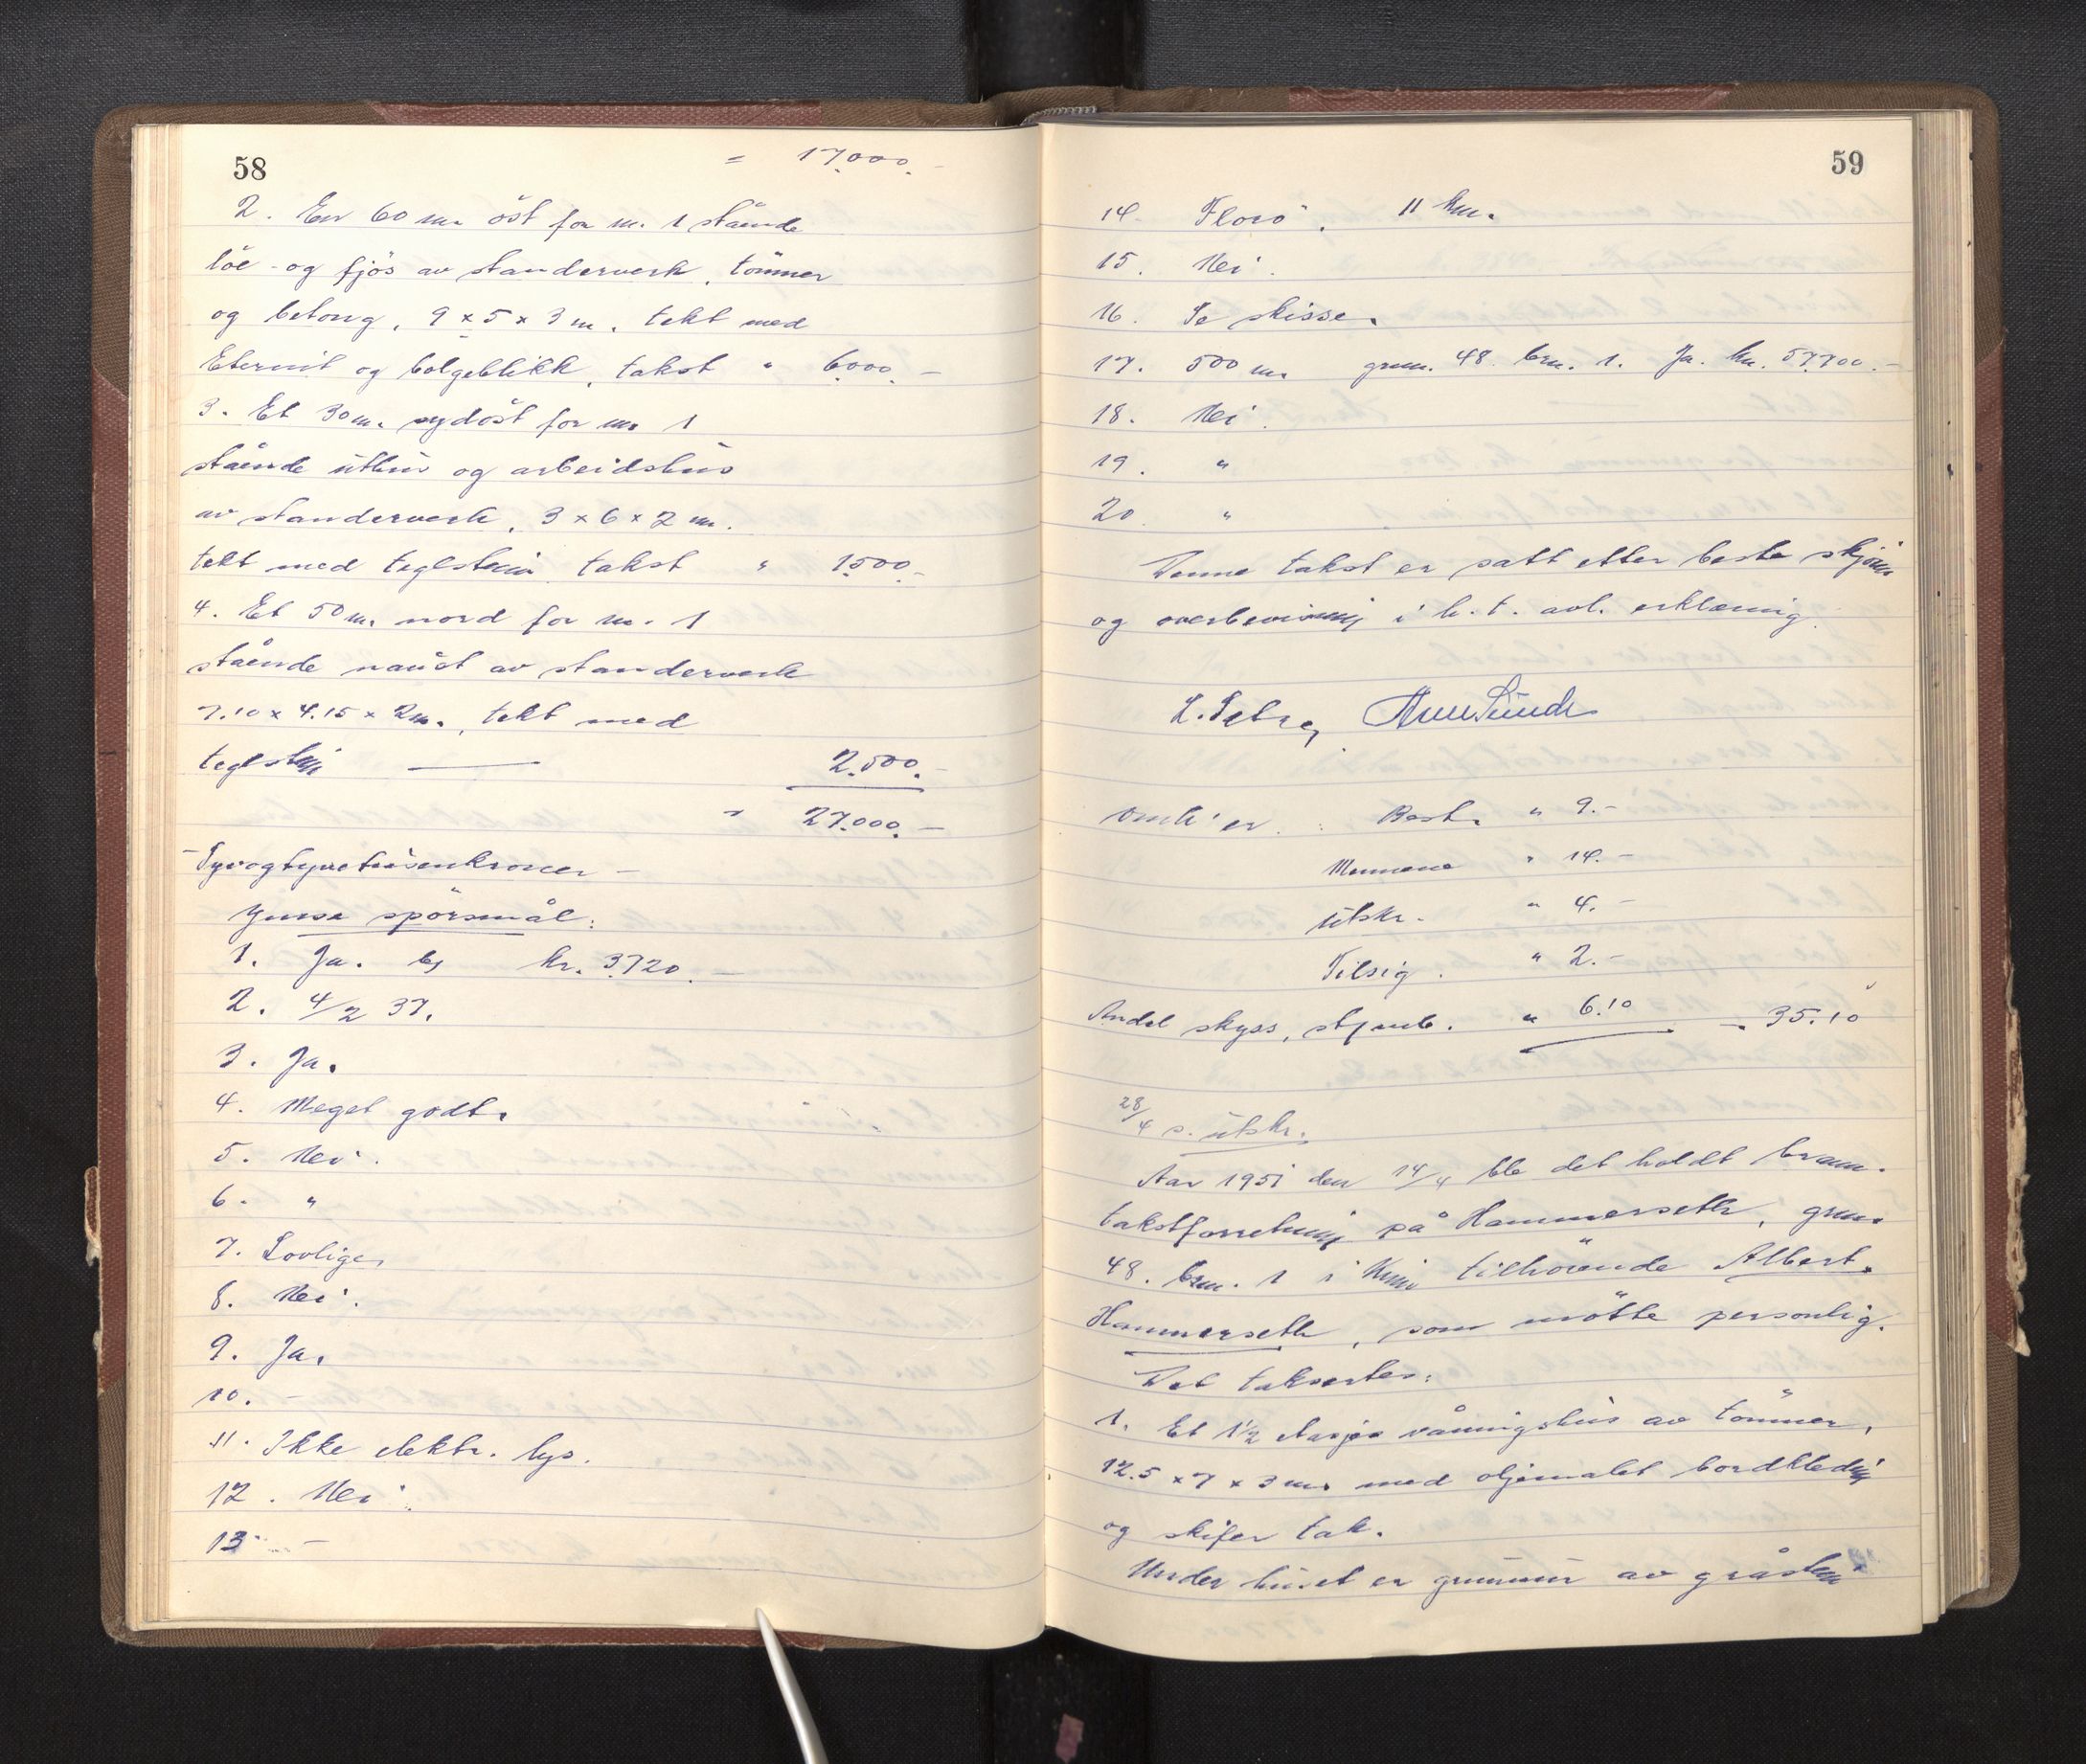 58
= 17.000.-
2. En 60 m. öst for m. 1 stående
löe - og fjös av standerverk, tömmer
og betong, 9 x 5 x 3 m, tekt med
Eternit og bölgeblikk, takst " 6.000.-
3. Et 30 m. sydöst for m. 1
stående uthus og arbeidshus
av standerverk, 3 x 6 x 2 m.
tekt med teglstein takst " 1.500.-
4. Et 50 m. nord for m. 1
stående naust av standerverk
7.10 x 4.15 x 2 m., tekt med
teglstein — 2.500.-
= 27.000.-
Syvogtyvetusenkroner -
Ymse spörsmål:
1. Ja. kr. 3.720.-
2. 4/2 37.
3. Ja.
4. Meget godt.
5. Nei.
6. "
7. Lovlige.
8. Nei.
9. Ja.
10. -
11. Ikke elektr. lys.
12. Nei.
13 -
59
14. Florö, 11 km.
15. Nei.
16. Se skisse.
17. 500 m. grnr. 48 brn. 1. Ja. kr. 57.700.-
18. Nei.
19. "
20. "
Denne takst er satt etter beste skjönn
og overbevisning i h. t. avl. erklæring.
Sunde
Omk' er : Best. " 9.-
Mennene " 14.-
Utskr. " 4.-
Tilsig. " 2.-
Andel skyss, " 6.10 = 35.10
28/4 s. utskr.
Aar 1951 den 14/4 ble det holdt brann-
takstforretning på Hammerseth, grnr.
48. brn. 1 i Kinn tilhörende Albert
Hammerseth, som mötte personlig.
Det taksertes:
1. Et 1 1/2 etasjes våningshus av tömmer,
12.5 x 7 x 3 m. med oljemalet bordkledning
og skifer tak.
Under huset er grunnmur av gråstein